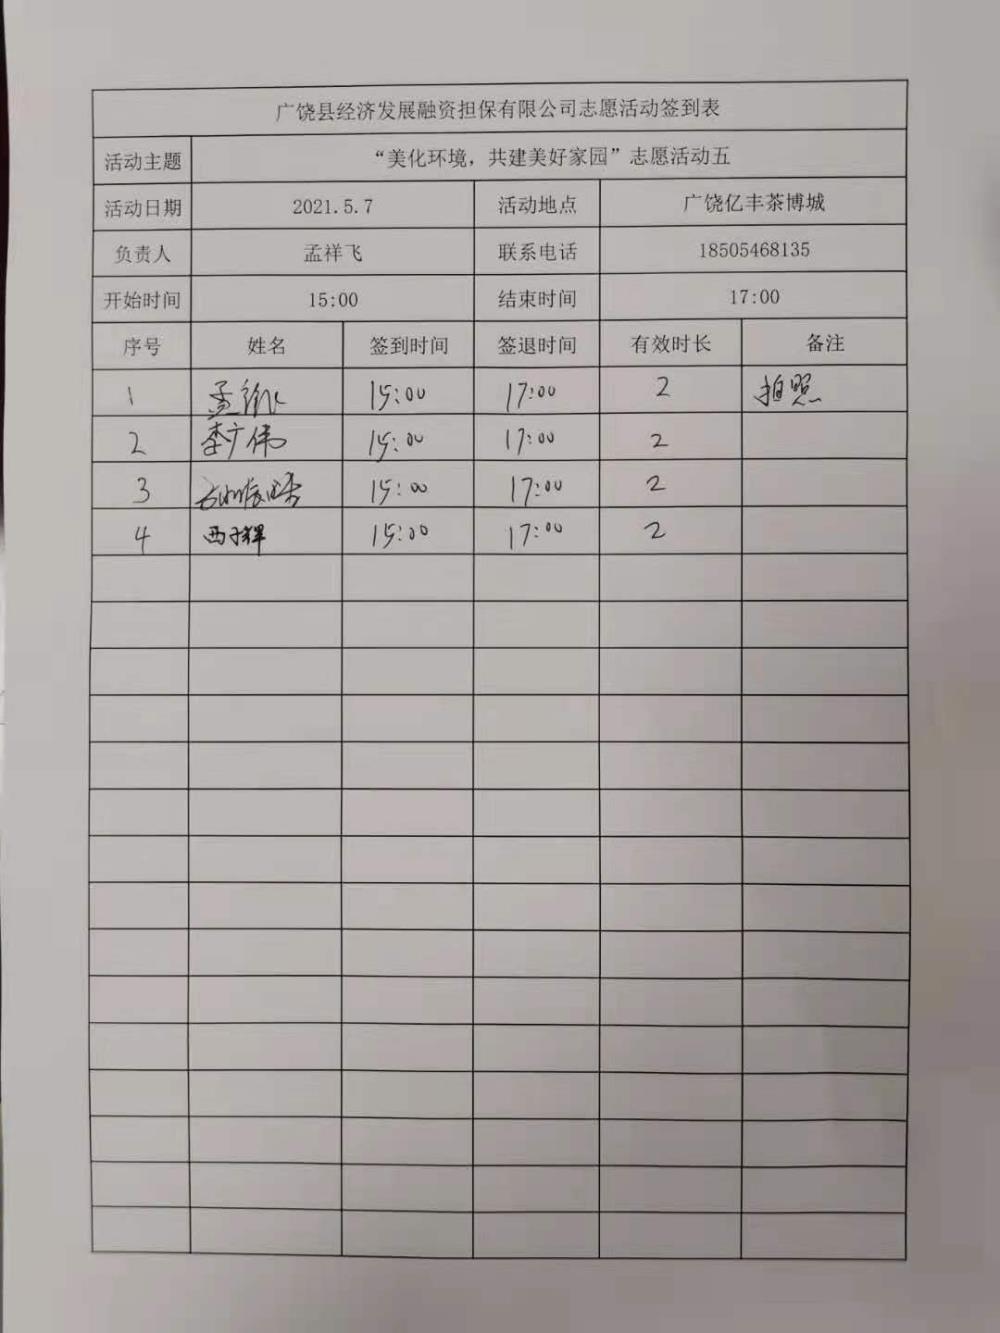 广饶县经济发展融资担保有限公司志愿活动签到表
活动主题 “美化环境，共建美好家园”志愿活动五
活动日期 2021.5.7 活动地点 广饶亿丰茶博城
负责人 孟祥飞 联系电话 18505468135
开始时间 15:00 结束时间 17:00
序号 姓名 签到时间 签退时间 有效时长 备注
1 孟 15:00 17:00 2 拍照
2 李广伟 15:00 17:00 2
3 15:00 17:00 2
4 西子辉 15:00 17:00 2